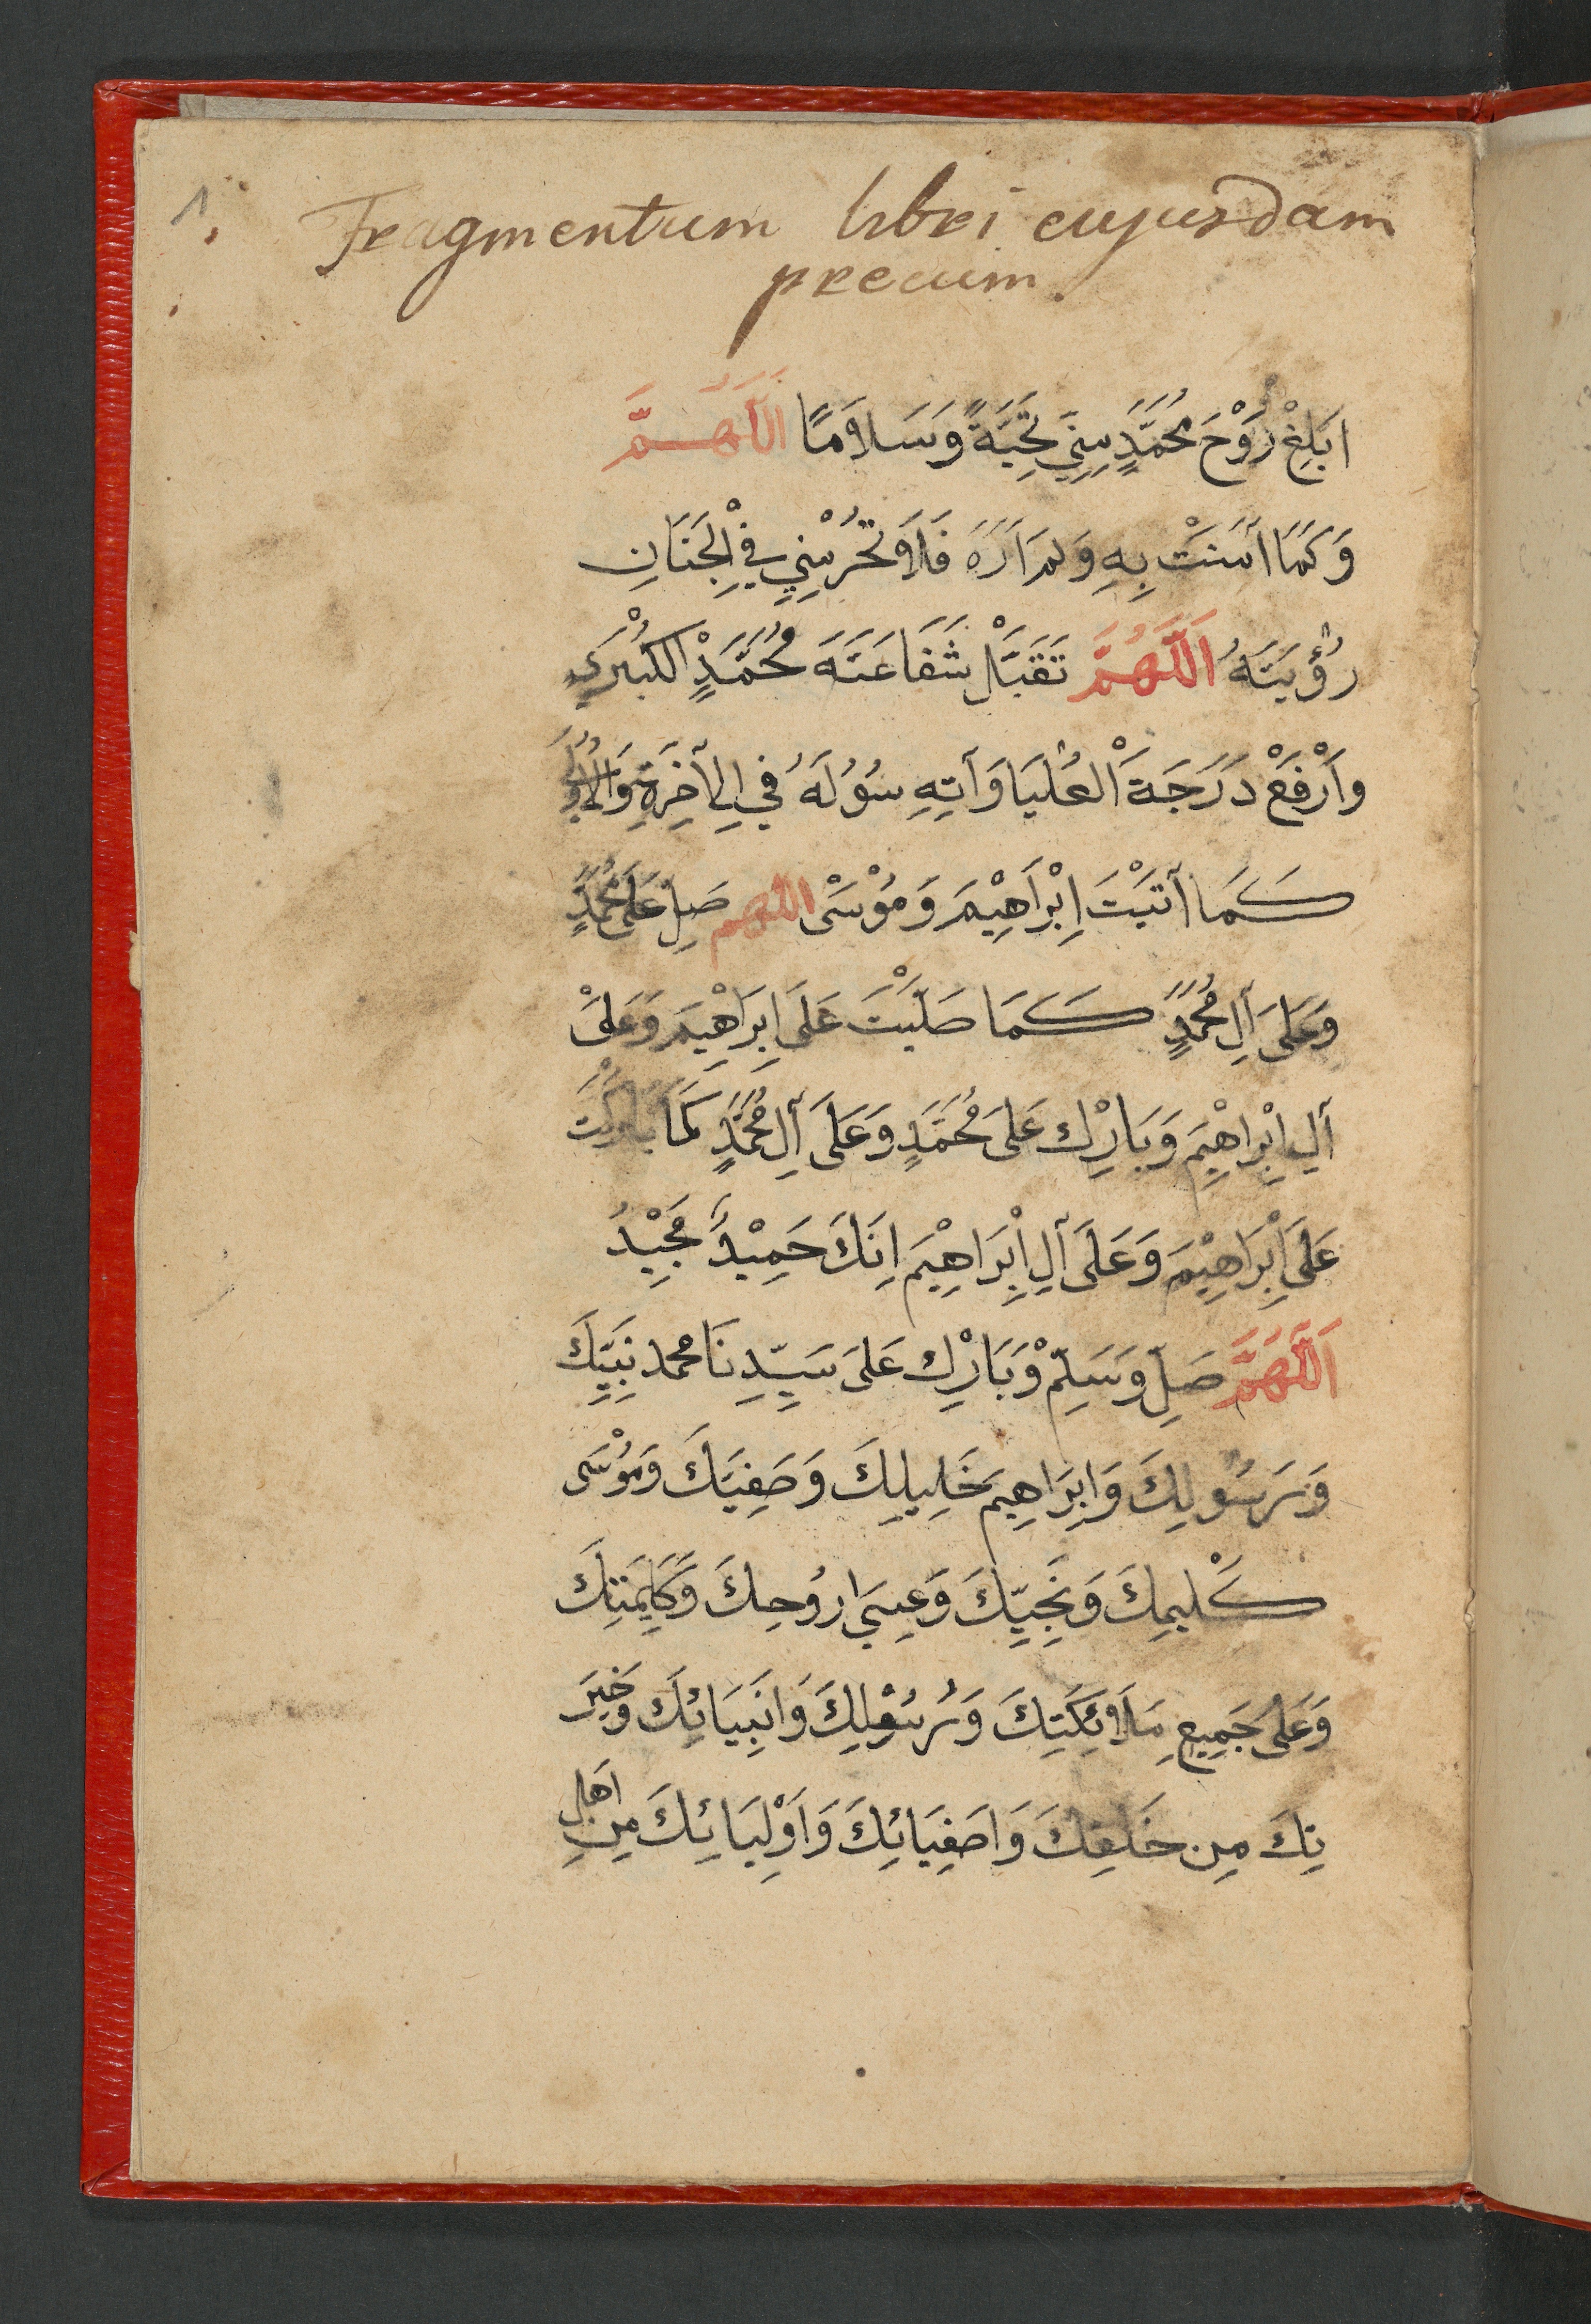 1.
Fragmentum libri cujusdam
precum.
ابَلِغْ رُوْحَ مُحَمَّدٍ مِنِّي تَحِيَّةً وَسَلَامًا اَللَّهُمَّ
وَكَمَا آمَنْتُ بِهِ وَلَمْ اَرَهُ فَلَا تَحْرُمْنِي فِي الْجَنَانِ
رُؤْيَتَهُ اَللَّهُمَّ تَقَبَّلْ شَفَاعَتَهَ مُحَمَّدٍ الكُبْرَي
وَارْفَعْ دَرَجَةَ الْعُلْيَا وَآتِهِ سُوُلَهُ فِي الآخِرَةِ وَالأُولَي
كَمَا آتَيْتَ اِبْرَاهِيْمَ وَمُوْسَى اللهم صَلِ عَلَى مُحَمَّدٍ
وَعَلَى آلِ مُحَمَّدٍ كَمَا صَلَّيْتَ عَلَى اِبِرَاهِيْمَ وَعَلَىْ
آلِ اِبْرَاهِيْمَ وَبَارِكْ عَلَى مُحَمَّدٍ وَعَلَى آلِ مُحَمَّدٍ كَمَا بَارَكْتَ
عَلَى اِبْرَاهِيْمَ وَعَلَى آلِ اِبْرَاهِيْمَ اِنَّكَ حَمِيْدٌ مَجِيْدُ
اَللَّهُمَّ صَلِ وَسَلِمْ وَبَارِكْ عَلَى سَيِّدِنَا محمد نَبِيِّكَ
وَرَسُولِكَ وَاِبْرَاهِيمَ خَلِيلِكَ وَصَفِيَّكَ وَمُوْسَى
كَلِيمِكَ وَنَجِيِّكَ وَعِيسَيا رُوحِكَ وَكَلِمَتِكَ
وَعَلَى جَمِيعِ مَلَائِكَتِكَ وَرُسُولِكَ وَانَبِيَائِكَ وَخِيَرَ
تِكَ مِن خَلقِكَ وَاصَفِيَائِكَ وَاَوْلِيَائِكَ مِنِ اَهلِ